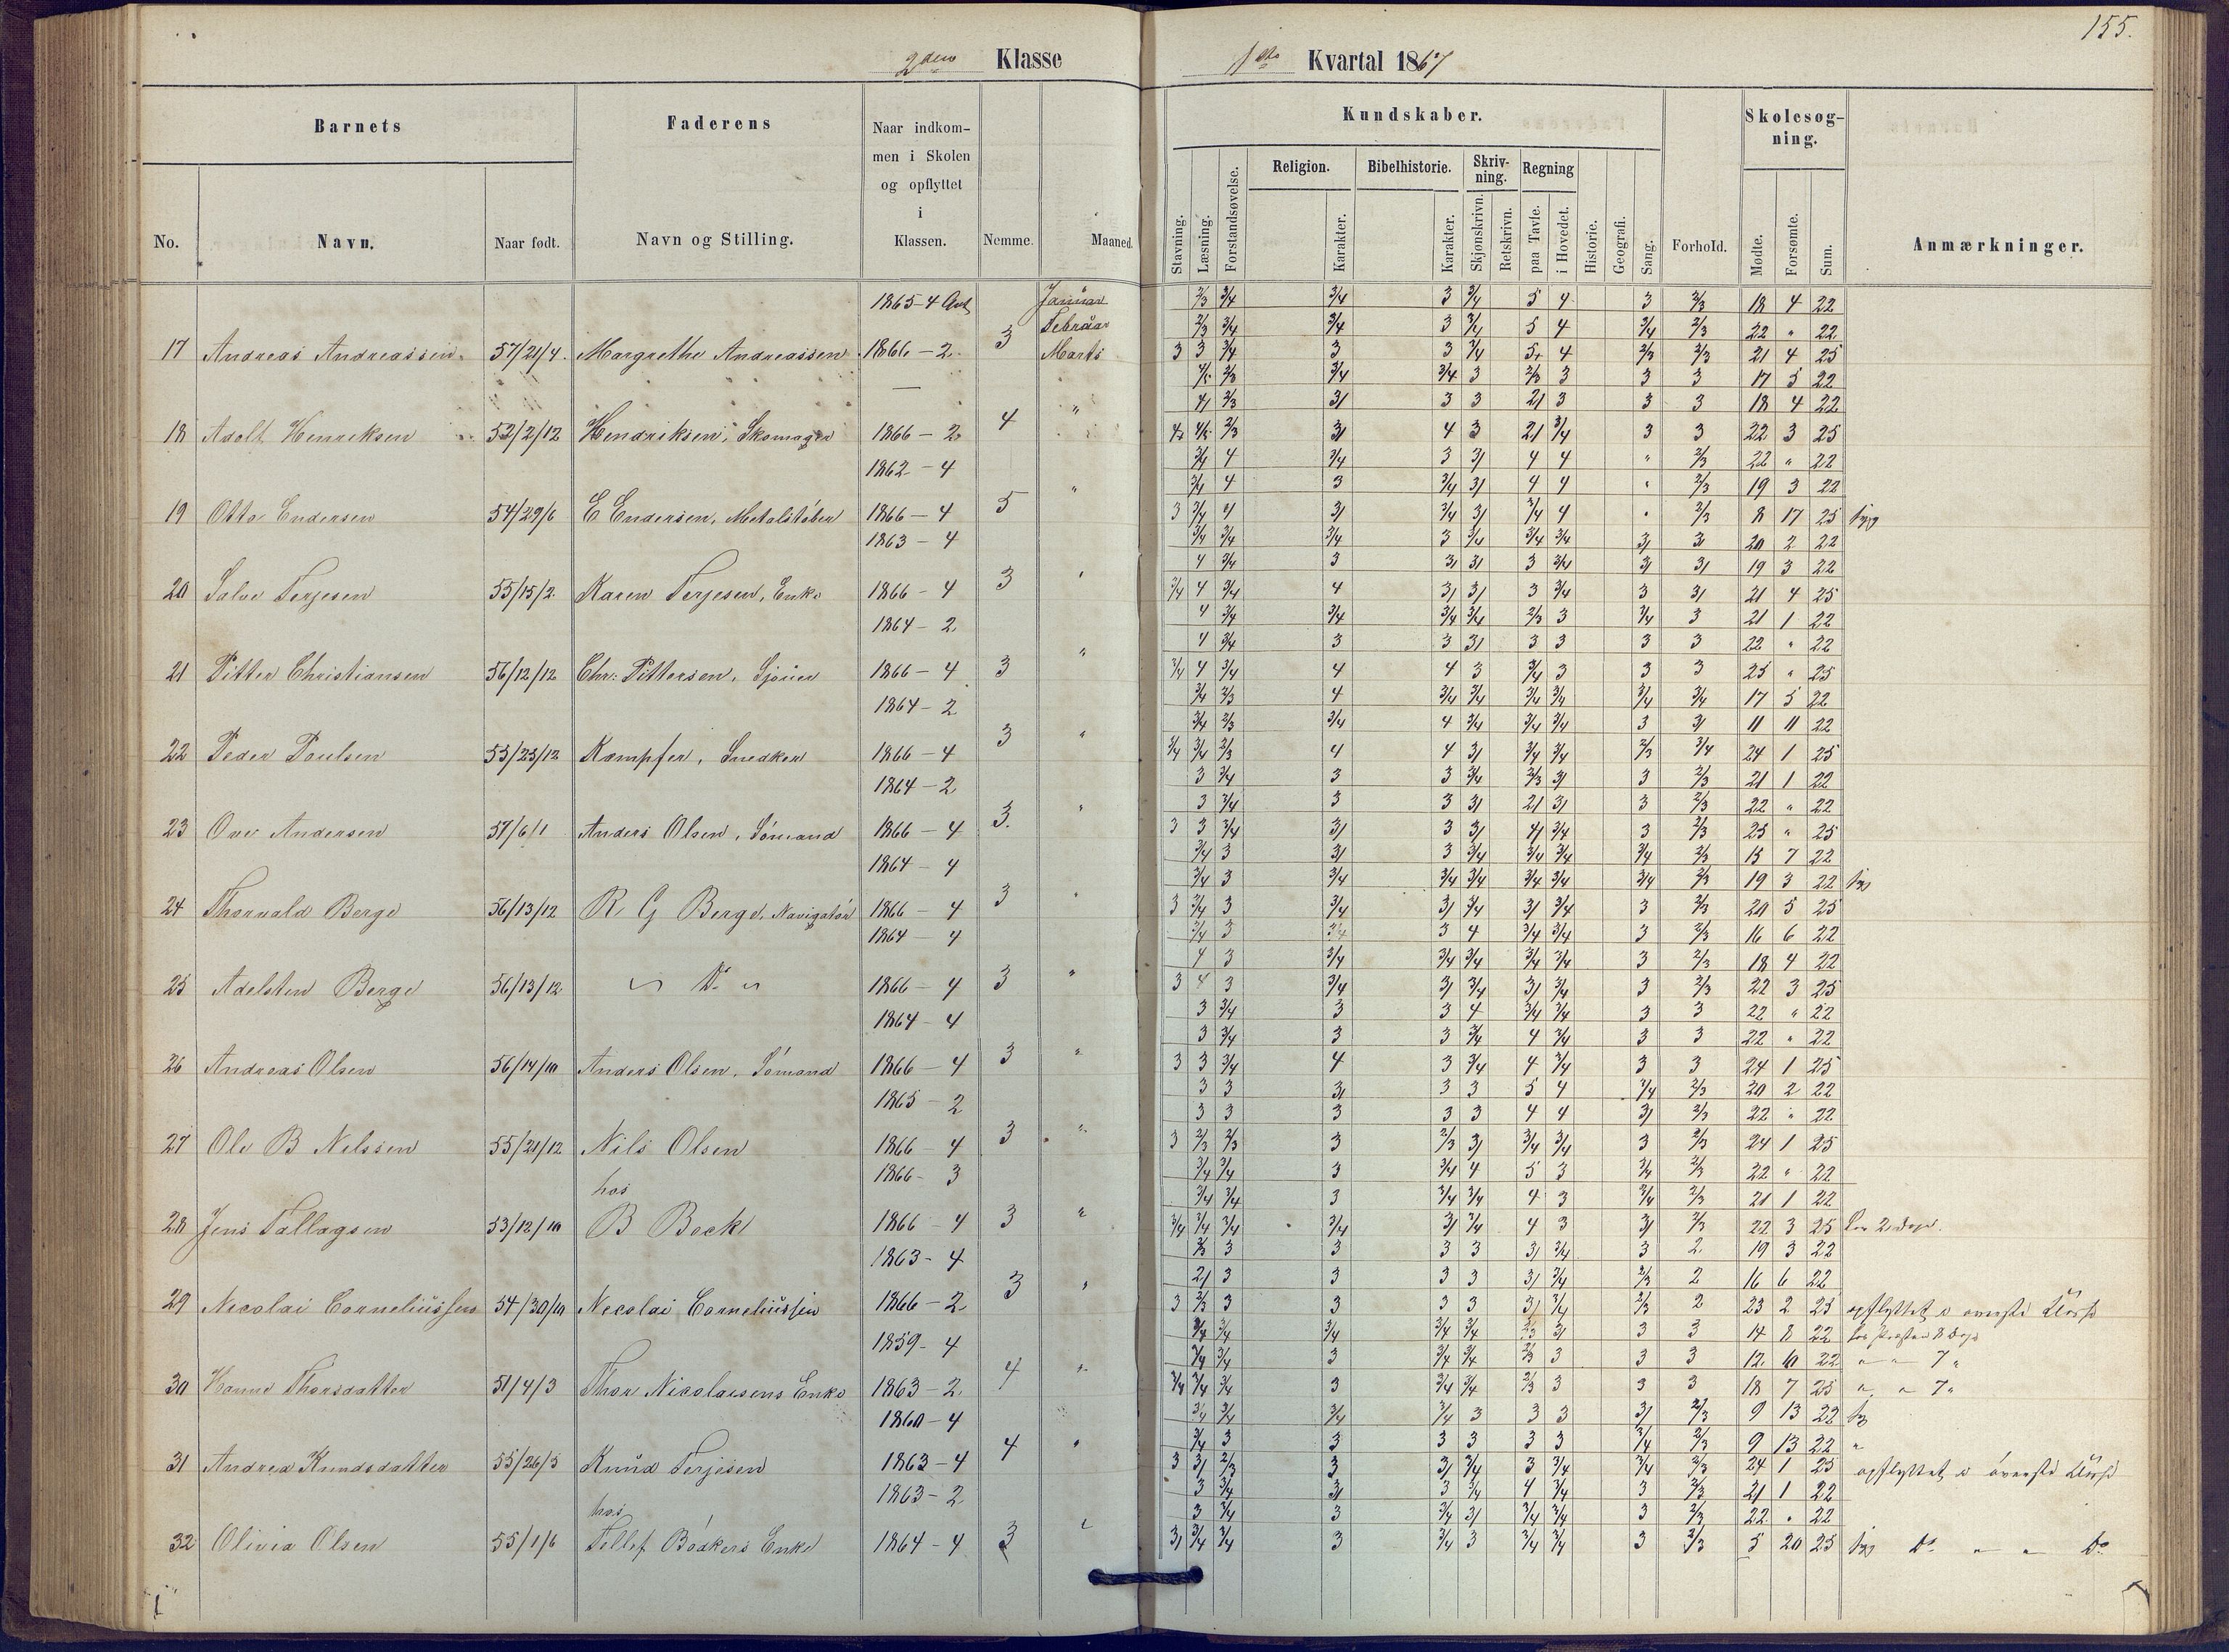 155.
2den Klasse
1ste Kvartal 1867
Barnets
Faderens
Naar indkom-
men i Skolen
og opflyttet
i
Klassen.
No.
Navn.
Naar født.
Navn og Stilling.
Nemme.
Maaned.
Kundskaber.
Skolesøg-
ning.
Religion.
Bibelhistorie.
Skriv-
ning.
Regning
Stavning.
Læsning.
Forstandsøvelse.
Karakter.
Karakter.
Skjønskrivn.
Retskrivn.
paa Tavle.
i Hovedet.
Historie.
Geografi.
Sang.
Forhold.
Mødte.
Forsømte.
Sum.
Anmærkninger.
1865-4 Januar 2/3 3/4 3/4 3 3/4 5 4 3 2/3 18 4 22
Februar 2/3 3/4 3/4 3 3/4 5 4 3/4 2/3 22 " 22
17 Andreas Andreassen 57/21/4 Margrethe Andreassen 1866-2 3 Marts 3 3 3/4 3 3 3/4 5 4 2/3 2/3 21 4 25
2/3 3/4 3/4 3 2/3 3 3 3 17 5 22
4/ 2/3 3/ 3 3 2/ 3 3 3 18 4 22
18 Adolf Henriksen 52/2/12 Hendriksen, Skomager 1866-2 4 " 2/3 3/ 4 3 2/ 3/4 3 3 22 3 25
1862-4 3/4 4 3/4 3 3/ 4 4 " 2/3 22 " 22
3/4 4 3 3/4 3/ 4 4 " 2/3 19 3 22
19 Otto Endersen 54/29/6 E Endersen, Metalstøber 1866-4 5 " 3 3/4 4 3/ 3/4 3/ 3/4 4 " 2/3 8 17 25 syg
1863-4 3/4 3/4 3/4 3 3/4 3/4 3/4 3/ 3/ 20 2 22
4 3/4 3 3/ 3/ 3 3/4 3/ 3/ 19 3 22
20 Salve Terjesen 55/15/2 Karen Terjesen, Enke 1866-4 3 " 3/4 4 3/4 4 3/ 3/ 3 3/4 3 3/ 21 4 25
1864-2 4 3/4 3/4 3/4 3/4 2/3 3 3/4 3 21 1 22
4 3/4 3 3 3/ 3 3 3 3 22 " 22
21 Pitter Christiansen 56/12/12 Chr: Pittersen, 1866-4 3 " 3/4 4 3/4 4 4 3 3/4 3 3 3 25 " 25
1864-2 3/4 2/3 4 3/4 3/4 3/4 3/4 3/4 3/4 17 5 22
3/4 2/3 3/4 4 3/4 3/4 3/4 3 3/ 11 11 22
22 Peder Poulsen 53/23/12 Kampfer, Snedker 1866-4 3 " 3/4 3/4 2/3 4 4 3/ 3/4 3/4 2/3 3/4 24 1 25
1864-2 3 3/4 3 3 3/4 2/3 3/ 3 2/3 21 1 22
3 3/4 3 3 3/ 2/ 3/ 3 2/3 22 " 22
23 Ove Andersen 57/6/1 Anders Olsen, Sømand 1866-4 3. " 3 3 3/4 3/ 3 3/ 4/ 3/4 3 2/3 25 " 25
1864-4 3/4 3 3/ 3 3/4 3/4 3/4 3/4 2/3 15 7 22
3/4 3 3/4 3/4 3/4 3/4 3/4 3/4 2/3 19 3 22 syg
24 Thorvald Berge 56/13/12 R G Berge, Navigatør 1866-4 3 " 3 3/4 3 3/4 3/ 3/4 3/ 3/4 3 2/3 20 5 25
1864-4 3/4 3 3/4 3 4 3/4 3/4 3 2/3 16 6 22
4 3 3/4 3/4 3/4 3/4 3/4 3 2/3 18 4 22
25 Adelsten Berge 56/13/12 " Do " 1866-4 3 " 3 4 3 3/4 3/ 3/4 3/ 3/4 3 2/3 22 3 25
1864-4 3 3/4 3 3 4 3/4 3/4 3 3 22 " 22
3 3/4 3 3 3/4 4 3/4 3 3 22 " 22
26 Andreas Olsen 56/14/10 Anders Olsen, Sømand 1866-4 3 " 3 3 3/4 4 3 3/4 4 3/4 3 3 24 1 25
1865-2 3 3 3/ 3 3 5 4 3/4 2/3 20 2 22
3 3 3 3 3 4 4 3/ 2/3 22 " 22
27 Ole B Nelssen 55/21/12 Nils Olsen 1866-4 3 " 3 2/3 2/3 3 2/3 3/ 3/4 3/4 3 2/3 24 1 25
hos 1866-3 3/4 3/4 3 3/4 4 5 3 3/4 2/3 22 " 22
3/4 3/4 3 3/4 3/4 4 3 3/4 2/3 21 1 22
28 Jens Tallagsen 53/12/10 B Bock 1866-4 3 " 3/4 3/4 3/4 3/4 3/ 3/4 4 3 3/ 2/3 22 3 25
1863-4 2/3 3 3 3 3 3/ 3/4 3 2 19 3 22
2/ 3 3 3 3 3/ 3/4 2/3 2 16 6 22
29 Necolai Corneliussen 54/30/10 Necolai Corneliussen 1866-2 3 " 3 2/3 3 3 3 3 3/ 3/4 2/3 2 23 2 25 opflyttet i øverste Klasse
1859-4 3/4 3/4 3/4 3/4 3/4 2/3 3/ 3 3 14 8 22 hos Presten 8 Dage
3/4 3/4 3 3/4 3/4 2/3 3 3 3 12 10 22 " " 7 "
30 Hanne Thorsdatter 51/4/3 Thor Nicolaisens Enke 1863-2 4 " 3/4 3/4 3/4 3 3/4 3/4 2/3 3 3 3 18 7 25 " " 7 "
1860-4 3/4 3/4 3/4 3/4 3 3 3 3/ 2/3 9 13 22 syg
3/4 3 3 3 3 3 3 3/4 2/3 9 13 22 "
31 Andrea Knudsdatter 55/26/5 Knud Terjesen 1863-4 4 " 3 3/ 2/3 3 3/ 3/4 3 3/4 3/4 2/3 24 1 25 opflyttet i øverste Klasse
hos 1863-2 3 3/4 3/ 3 3/4 4 3/4 3 2/3 21 1 22
3 3/4 3 3/4 3/ 3/4 3/4 3 2/3 22 " 22
32 Olivia Olsen 55/1/6 Tellef Bødkers Enke 1864-4 3 " 3/ 3/4 3/4 3 3/4 3 3/4 3/4 3 2/3 5 20 25 syg Do " " Do